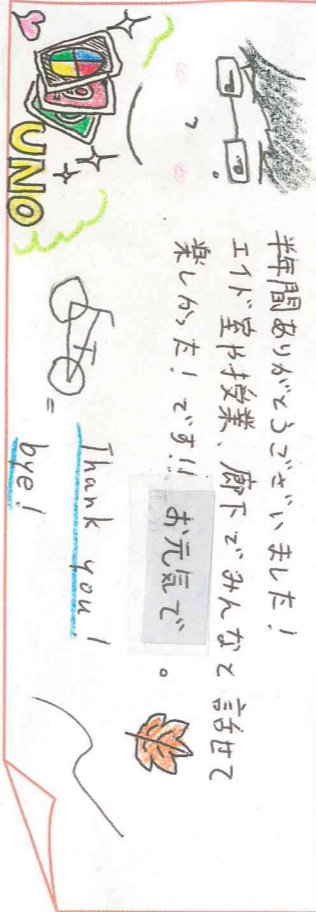 半年間ありがとうございました!
エイド室や授業、廊下でみんなと話せて
楽しかった!です!! お元気で。
Thank you!
bye!
UNO